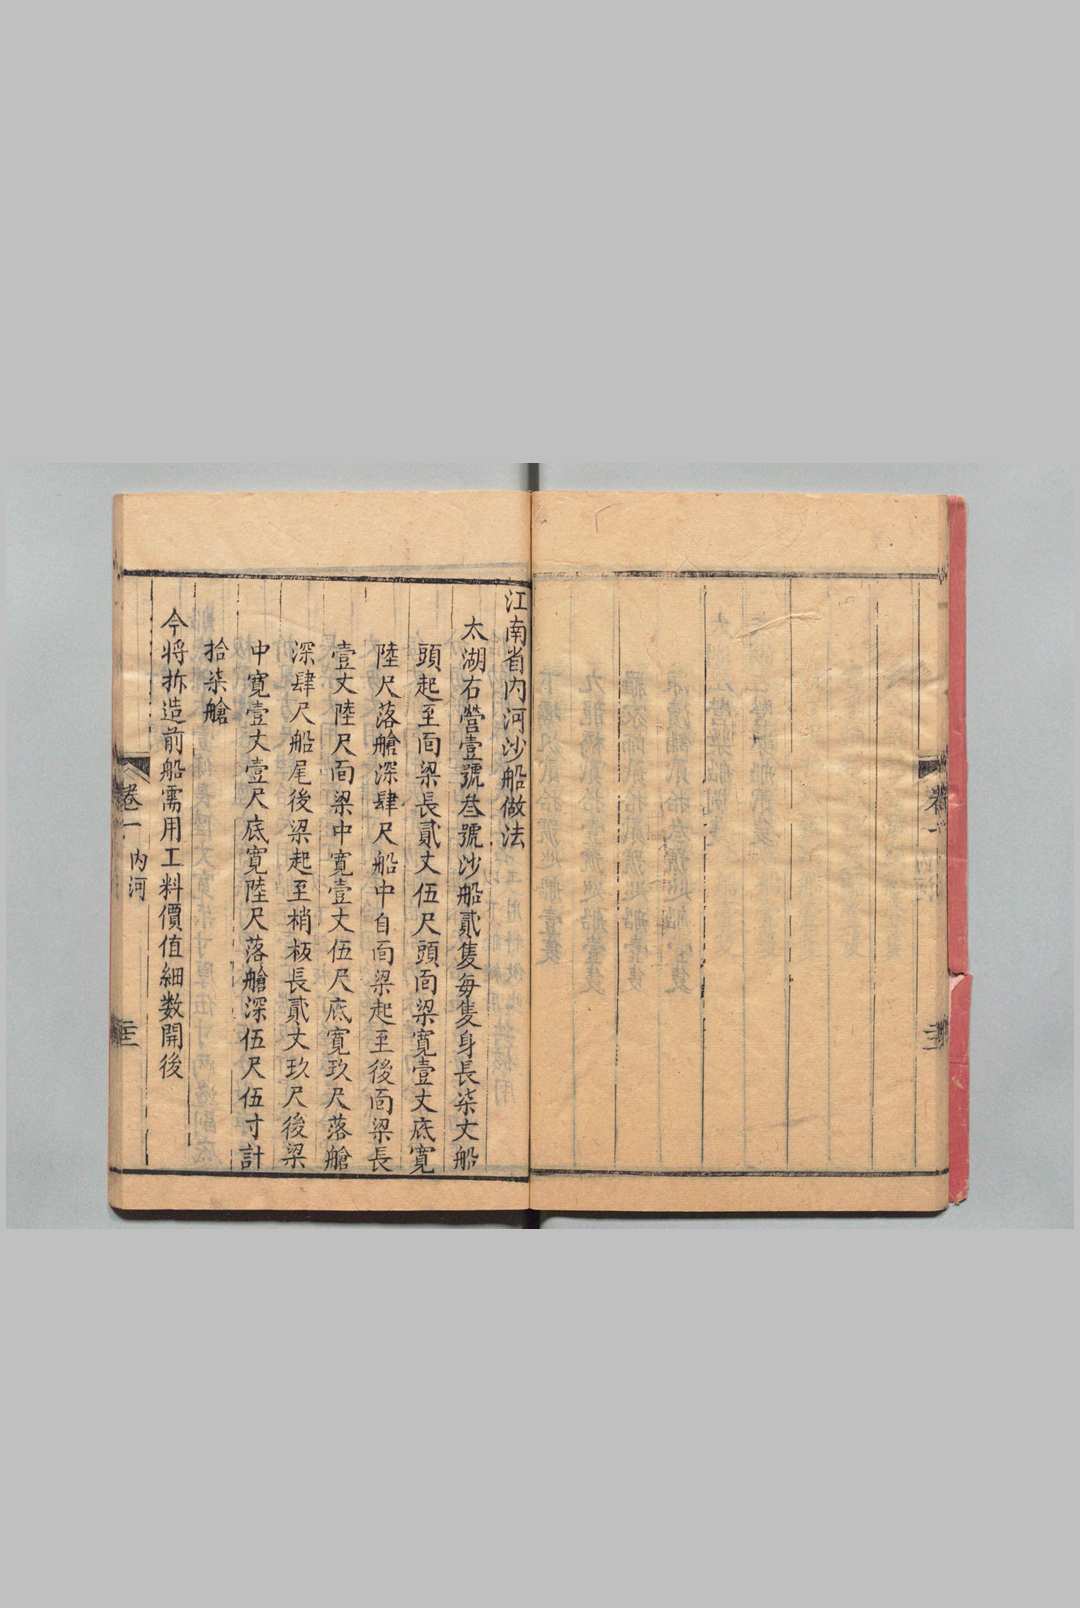 江南省内河沙船做法
太湖右營壹號叁號沙船貳隻每隻身長柒丈船
頭起至面梁長貳丈伍尺頭面梁寬壹丈底寬
陸尺落艙深肆尺船中自面梁起至後面梁長
壹丈陸尺面梁中寬壹丈伍尺底寬玖尺落艙
深肆尺船尾後梁起至梢板長貳丈玖尺後梁
中寬壹丈壹尺底寬陸尺落艙深伍尺伍寸計
拾柒艙
今將拆造前船需用工料價值細数開後
卷一
内河